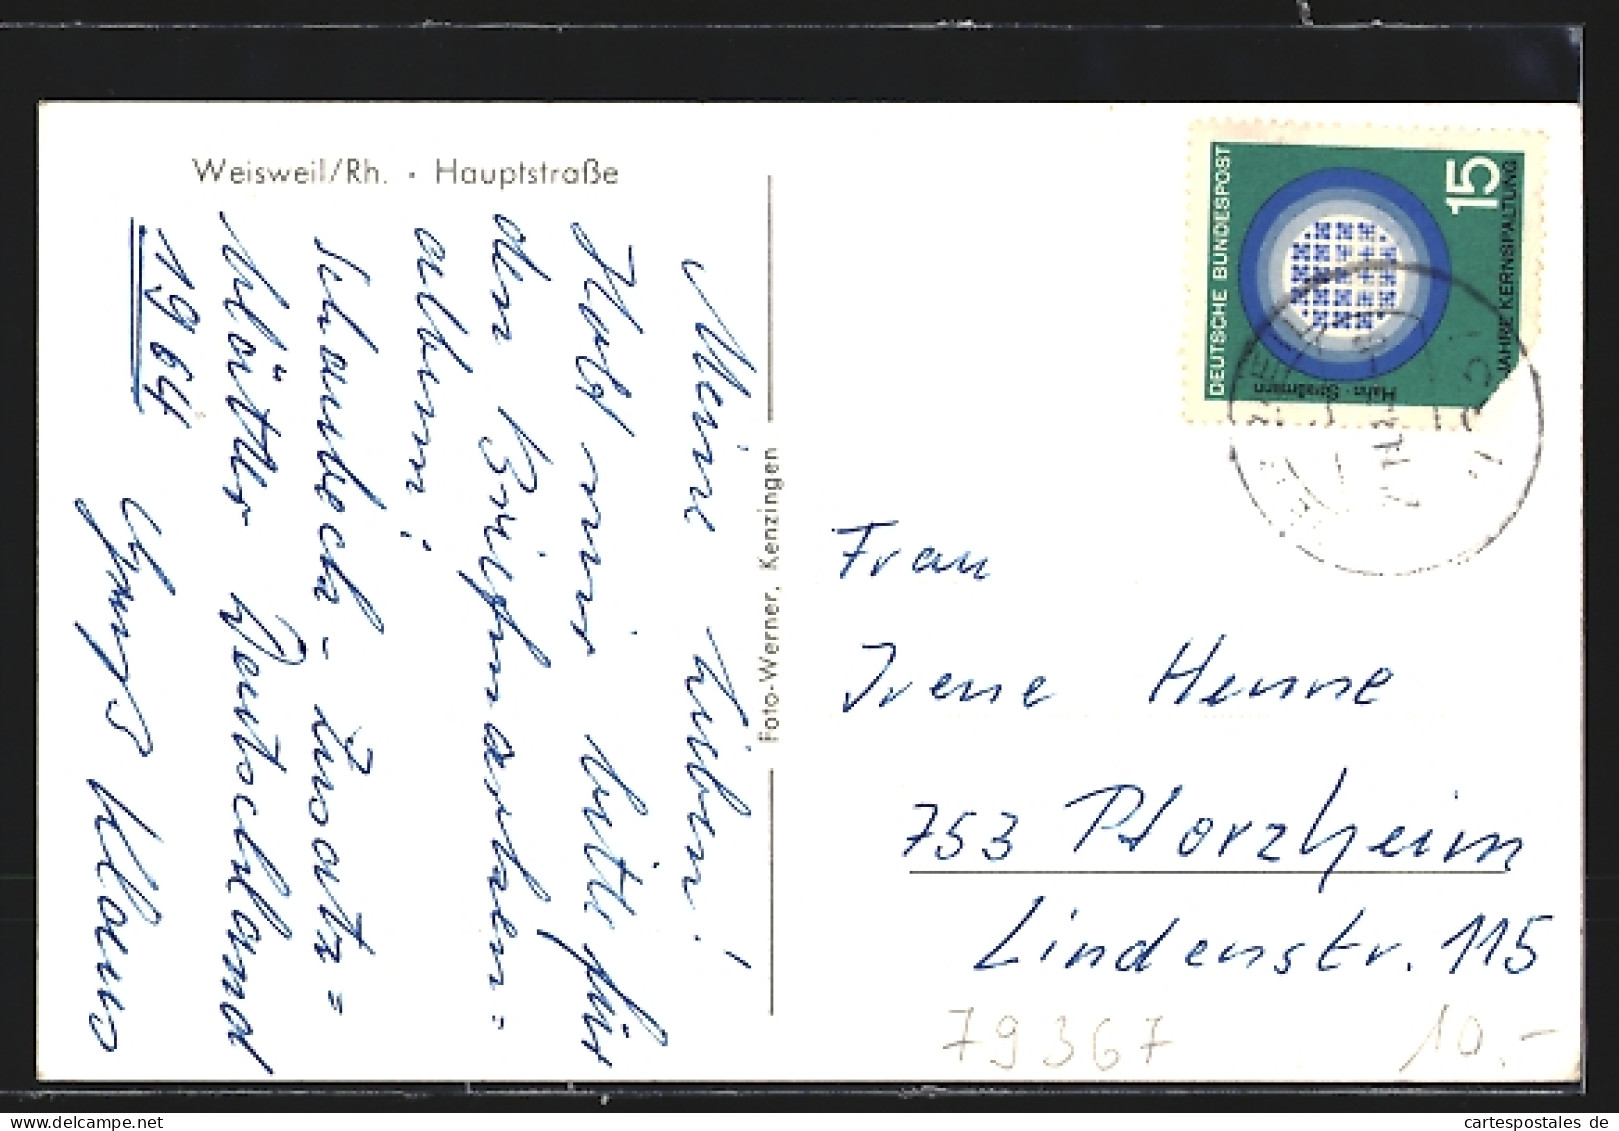 Weisweil/Rh. · Hauptstraße
Meine Lieben!
Hebt mir bitte für
den Briefmarken=
album:
Schaubeck-Zusatz=
blätter Deutschland
1964
Gruß Klaus
Foto-Werner, Kenzingen
DEUTSCHE BUNDESPOST
15
JAHRE KERNSPALTUNG
Hahn · Straßmann
Frau
Irene Henne
753 Pforzheim
Lindenstr. 115
79367
10.-
cartespostales de